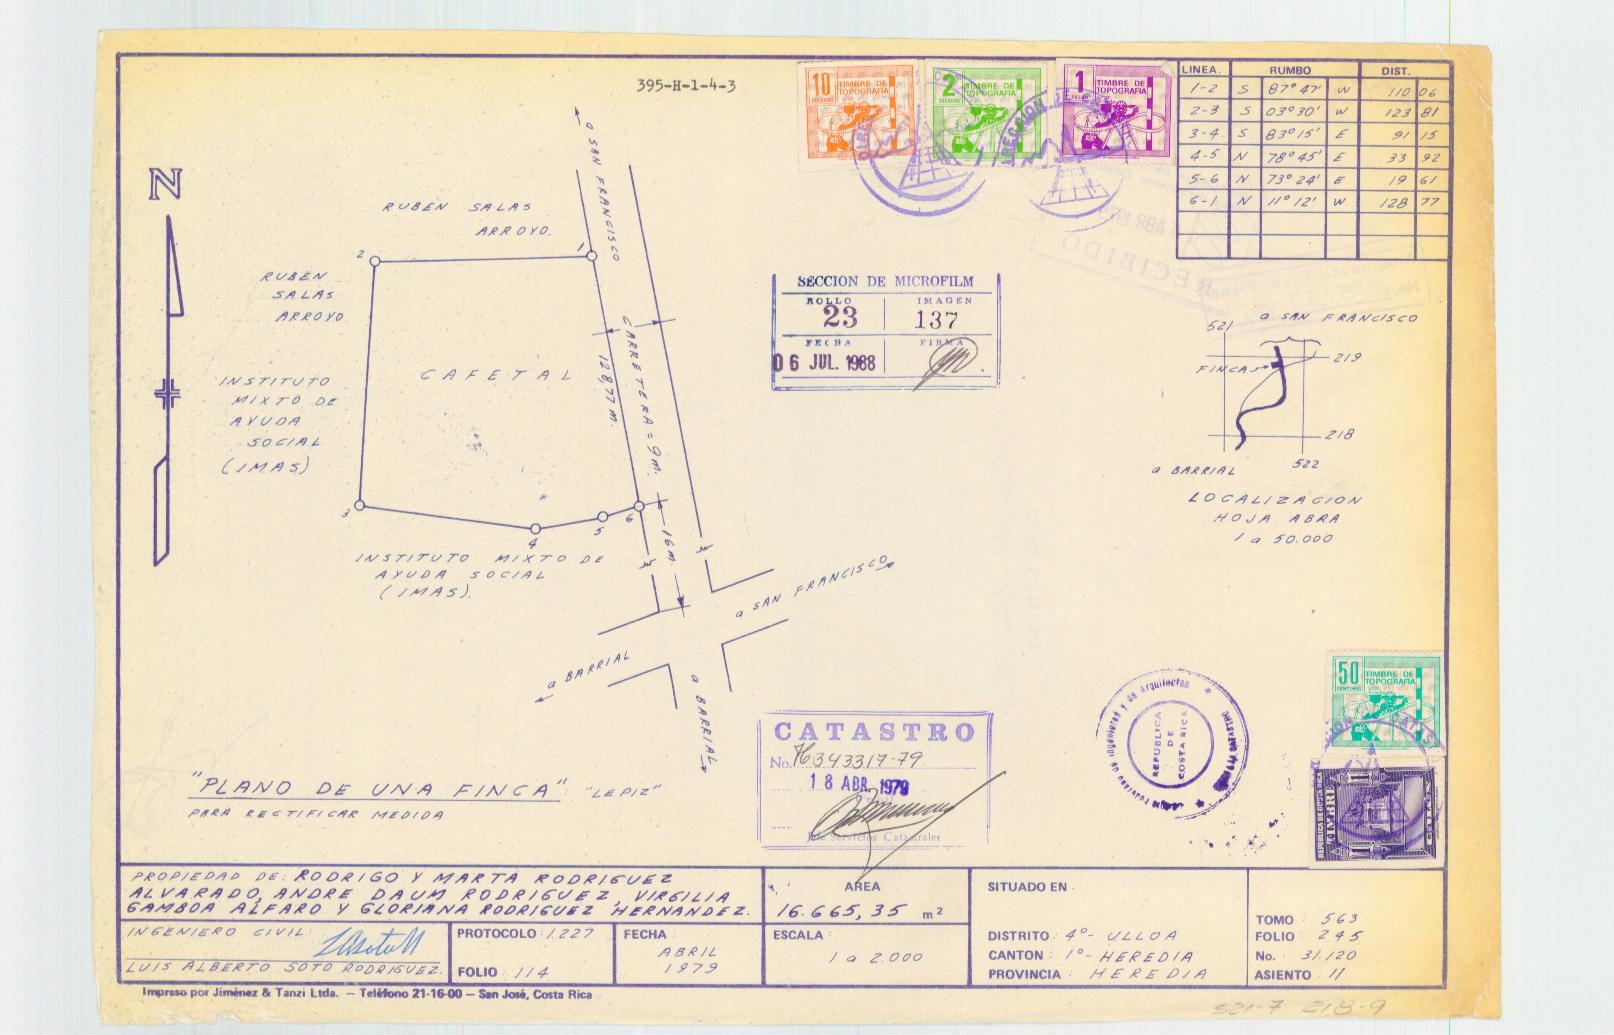 395-H-1-4-3
10 TIMBRE DE
TOPOGRAFIA
2 TIMBRE DE
TOPOGRAFIA
1 TIMBRE DE
TOPOGRAFIA
LINEA. RUMBO DIST.
1-2 S 87°47' W 110 06
2-3 S 03°30' W 123 81
3-4 S 83°15' E 91 15
4-5 N 78°45' E 33 92
5-6 N 73°24' E 19 61
6-1 N 11°12' W 128 77
N
a SAN FRANCISCO
RUBEN SALAS
ARROYO.
1
2
RUBEN
SALAS
ARROYO
INSTITUTO
MIXTO DE
AYUDA
SOCIAL
(IMAS)
CAFETAL
128,77 m.
CARRETERA = 9 m.
3
4
5
6
16 m.
INSTITUTO MIXTO DE
AYUDA SOCIAL
(IMAS).
a SAN FRANCISCO
a BARRIAL
a BARRIAL
SECCION DE MICROFILM
ROLLO IMAGEN
23 137
FECHA FIRMA
06 JUL. 1988
RECIBIDO
521 a SAN FRANCISCO
219
FINCA
218
a BARRIAL 522
LOCALIZACION
HOJA ABRA
1 a 50.000
"PLANO DE UNA FINCA": "LEPIZ"
PARA RECTIFICAR MEDIDA
CATASTRO
No. H343317-79
18 ABR. 1979
Jefe Servicios Catastrales
REPUBLICA
DE
COSTA RICA
50 TIMBRE DE
CENTIMOS TOPOGRAFIA
TIMBRE
PROPIEDAD DE: RODRIGO Y MARTA RODRIGUEZ
ALVARADO, ANDRE DAUM RODRIGUEZ, VIRGILIA
GAMBOA ALFARO Y GLORIANA RODRIGUEZ HERNANDEZ.
AREA
16.665,35 m²
SITUADO EN:
DISTRITO: 4°- ULLOA
CANTON: 1°- HEREDIA
PROVINCIA: HEREDIA
TOMO: 563
FOLIO: 245
No.: 31.120
ASIENTO: 11
INGENIERO CIVIL:
LUIS ALBERTO SOTO RODRIGUEZ.
PROTOCOLO: 1.227
FOLIO: 114
FECHA:
ABRIL
1979
ESCALA:
1 a 2.000
Impreso por Jiménez & Tanzi Ltda. — Teléfono 21-16-00 — San José, Costa Rica
521-7 218-9